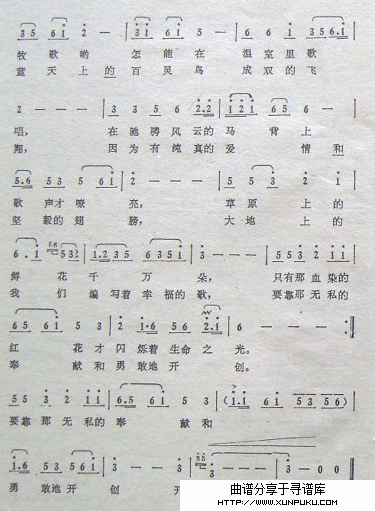 35 61 2 - | 31 61 5 - | 6 1 2 | 35 356.1
牧歌哟 怎能在 温室里歌
蓝天上的百灵鸟 成双的飞
2 - - - | 3 3 5 6 2.2 | 121 65 | 6 6 - - |
唱， 在驰骋风云的马背上
翔， 因为有纯真的爱情和
5.6 53 5 61 | 2 - - - | 5 5 3 2 1
歌声才嘹亮， 草原上的
坚毅的翅膀， 大地上的
鲜花千万朵， 只有那血染的
我们编写着幸福的歌， 要靠那无私的
65 61 5 3 | 2 1·6 56 2·1 | 6 - -
红花才闪烁着生命之光。
奉献和勇敢地开创。
553 2 11 | 6.5 61 5 3 | (1.1 61 53 56)
要靠那无私的奉献和
1.6 53 561 | 3 - 3 - | 3 - - - | 3 - 0 0
勇敢地开创开
曲谱分享于寻谱库
HTTP://WWW.XUNPUKU.COM